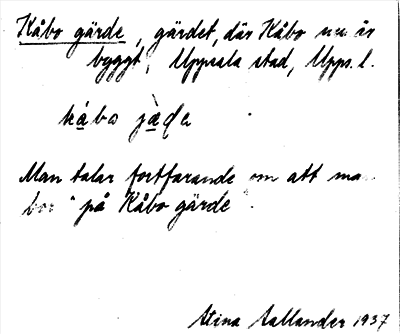 Kåbo gärde, gärdet, där Kåbo nu är
byggt, Uppsala stad, Upps. l.
kåbo jäḍe
Man talar fortfarande om att man
bor "på Kåbo gärde".
Stina Sallander 1937